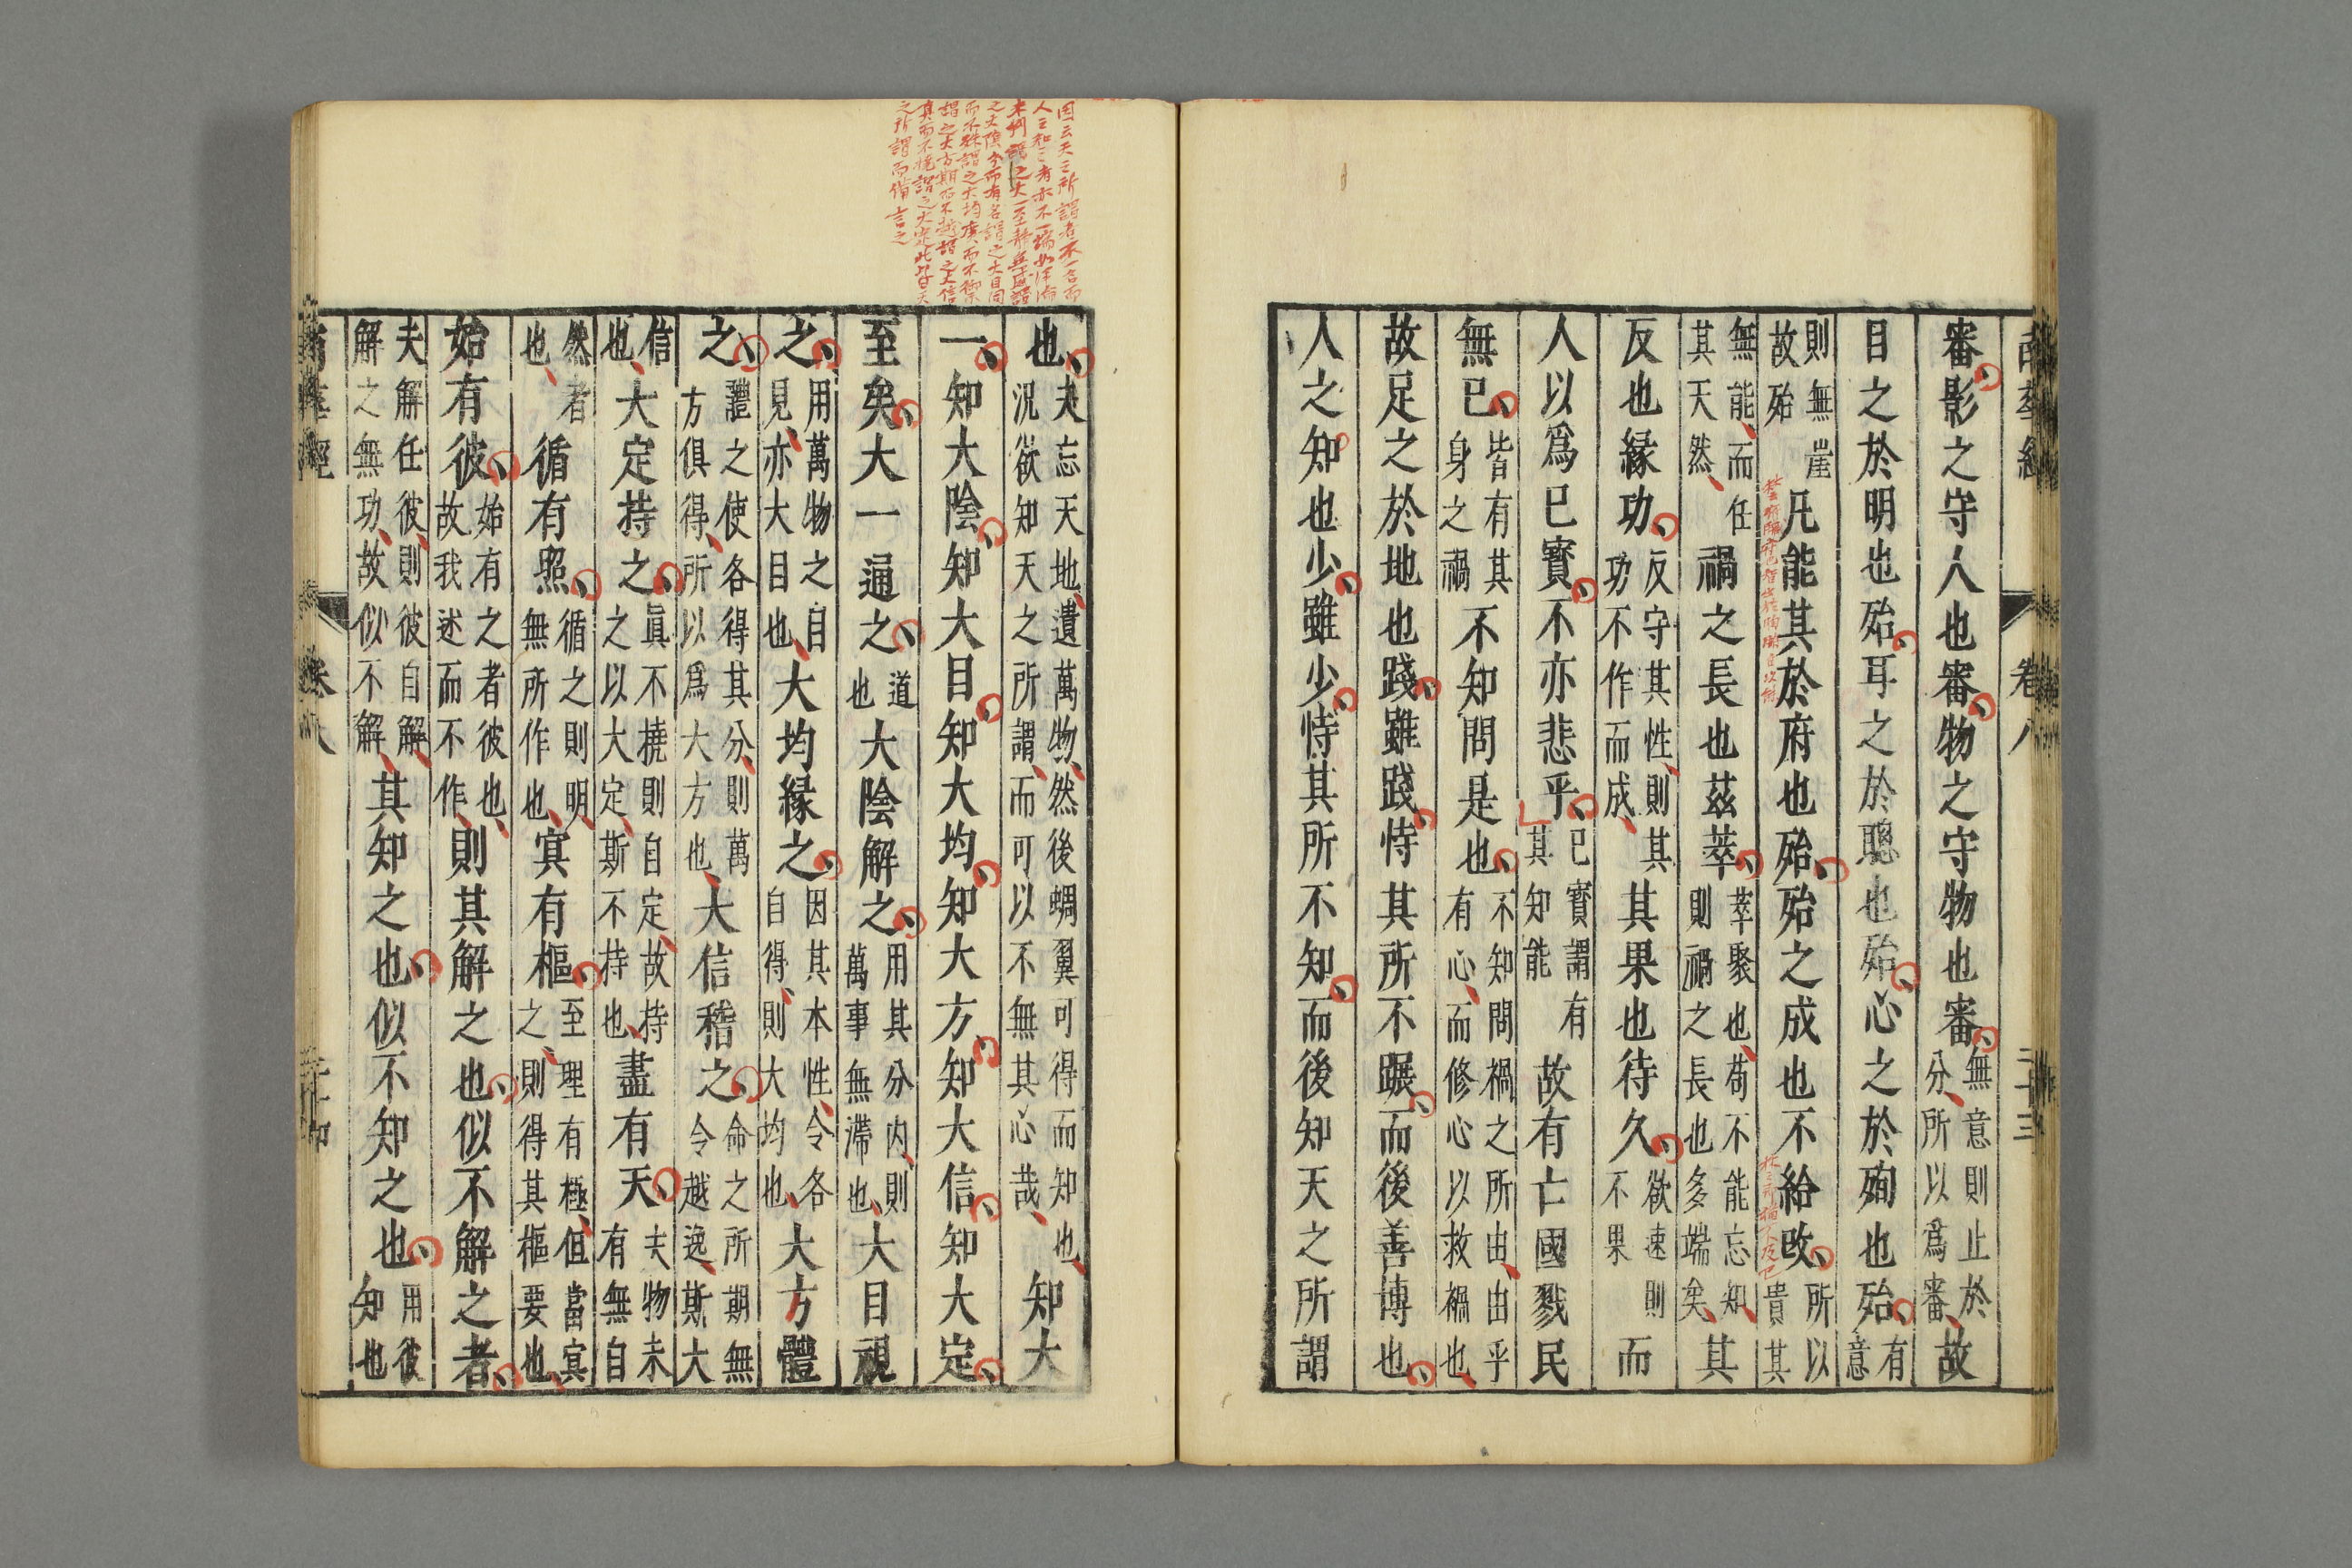 南華經 卷八 二十三
審影之守人也審物之守物也審無意則止於分所以爲審故
目之於明也殆耳之於聰也殆心之於殉也殆有意
則無崖故殆凡能其於府也殆殆之成也不給改所以貴其
無能而任其天然禍之長也茲萃萃聚也苟不能忘知則禍之長也多端矣其
反也緣功反守其性則其功不作而成其果也待久欲速則不果而
人以爲已寶不亦悲乎已寶謂有其知能故有亡國戮民
無已皆有其身之禍不知問是也不知問禍之所由由乎有心而修心以救禍也
故足之於地也踐雖踐恃其所不蹍而後善博也
人之知也少雖少恃其所不知而後知天之所謂
因云天之所謂者不一名而
人之知之者亦不一端如渾淪
未判謂之大一至靜無感謂
之大陰分而有名謂之大目同
而不殊謂之大均廣而不禦
謂之大方期而不越謂之大信
真而不撓謂之大定此皆天
之所謂而備言之
也夫忘天地遺萬物然後蜩翼可得而知也況欲知天之所謂而可以不無其心哉知大
一知大陰知大目知大均知大方知大信知大定
至矣大一通之道也大陰解之用其分內則萬事無滯也大目視
之用萬物之自見亦大目也大均緣之因其本性令各自得則大均也大方體
之體之使各得其分則萬方俱得所以爲大方也大信稽之命之所期無令越逸斯大
信也大定持之眞不撓則自定故持之以大定斯不持也盡有天夫物未有無自
然者也循有照循之則明無所作也冥有樞至理有極但當冥之則得其樞要也
始有彼始有之者彼也故我述而不作則其解之也似不解之者
夫解任彼則彼自解解之無功故似不解其知之也似不知之也用彼知也
南華經 卷八 二十四